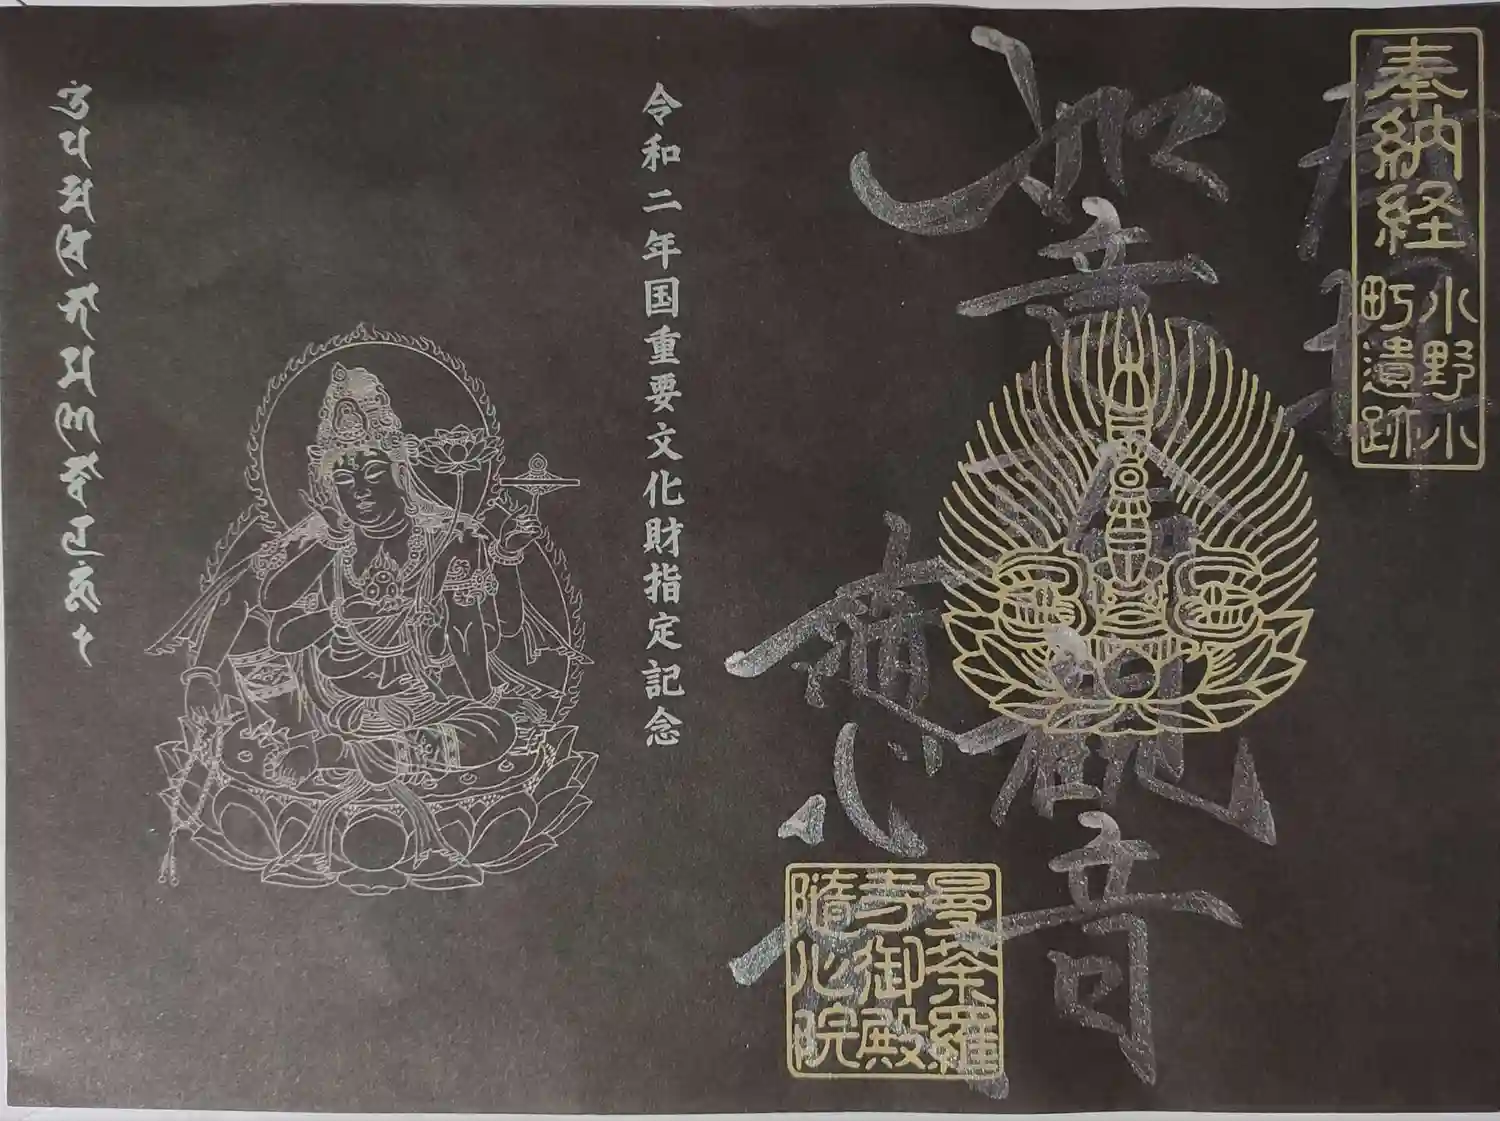 奉納経
小野小
町遺跡
奉拝
如意輪観音
随心院
曼荼羅
寺御殿
隨心院
令和二年国重要文化財指定記念